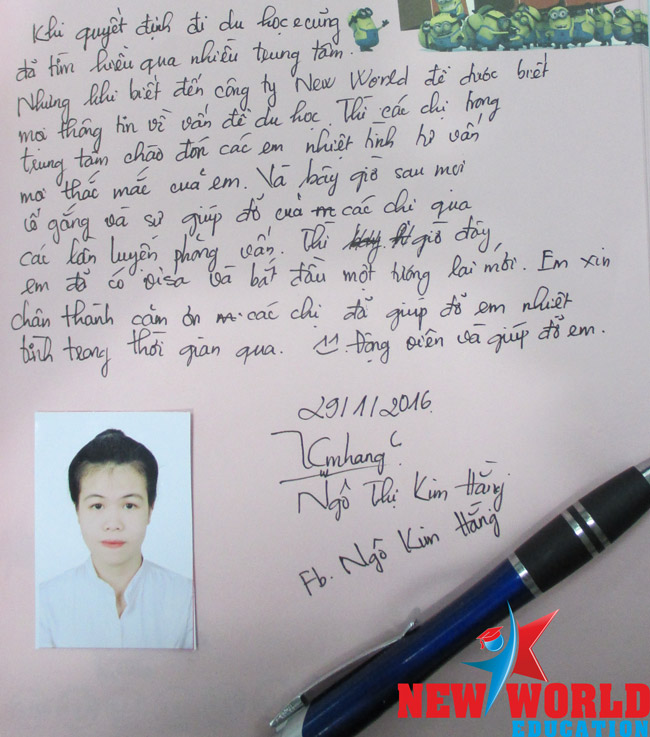 Khi quyết định đi du học e cũng
đã tìm hiểu qua nhiều trung tâm.
Nhưng khi biết đến công ty New World để được biết
mọi thông tin về vấn đề du học. Thì các chị trong
trung tâm chào đón các em nhiệt tình tư vấn
mọi thắc mắc của em. Và bây giờ sau mọi
cố gắng và sự giúp đỡ của các chị qua
các lần luyện phỏng vấn. Thì giờ đây
em đã có visa và bắt đầu một tương lai mới. Em xin
chân thành cảm ơn các chị đã giúp đỡ em nhiệt
tình trong thời gian qua. Động viên và giúp đỡ em.
29/1/2016.
Ngô Thị Kim Hằng
Fb. Ngô Kim Hằng
NEW WORLD
EDUCATION